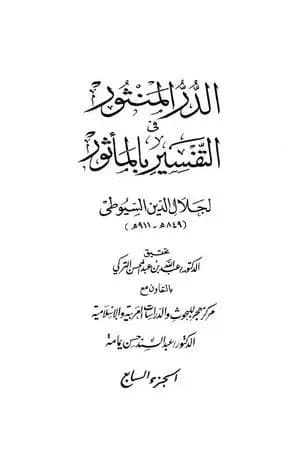 الدر المنثور
في
التفسير بالمأثور
لجلال الدين السيوطي
(٨٤٩هـ - ٩١١هـ)
تحقيق
الدكتور عبد الله بن عبد المحسن التركي
بالتعاون مع
مركز هجر للبحوث والدراسات العربية والإسلامية
الدكتور عبد السند حسن يمامة
الجزء السابع